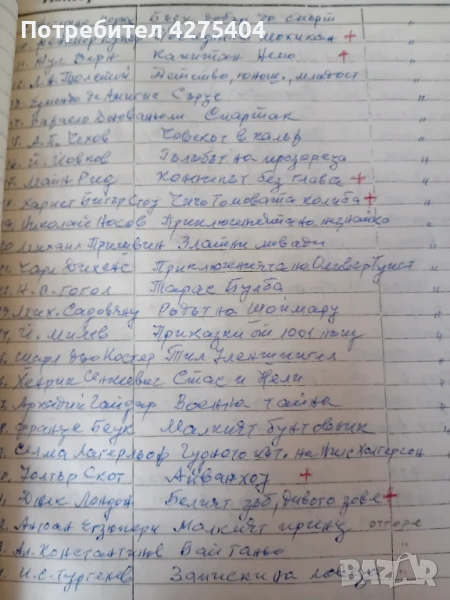 Потребител 4275404
Фенимор Купър
11. Жул Верн Капитан Немо +
12. Л.Н. Толстой Детство, юнош., младост "
Едмондо де Амичис Сърце "
Рафаело Джованьоли Спартак "
А.П. Чехов Човекът в калъф "
Й. Йовков Гълъбът на прозореца "
Майн Рид Конникът без глава + "
Хариет Бичер Стоу Чичо Томовата колиба + "
Николай Носов Приключенията на Незнайко "
Михаил Пришвин Златни ливади "
Чарл Дикенс Приключенията на Оливер Туист "
Н.В. Гогол Тарас Булба "
Мих. Садовяну Родът на Шоймару "
Й. Милев Приказки от 1001 нощ "
Шарл дьо Костер Тил Уленшпигел "
Хенрик Сенкевич Стас и Нели "
Аркадий Гайдар Военна тайна "
Франце Бевк Малкият бунтовник "
Селма Лагерльоф Чудното път. на Нилс Холгерсон "
Уолтър Скот Айванхоу + "
Джек Лондон Белият зъб, Дивото зове + "
Антоан Екзюпери Малкият принц отгоре "
Ал. Константинов Бай Ганьо "
И.С. Тургенев Записки на ловеца
Bazar.bg